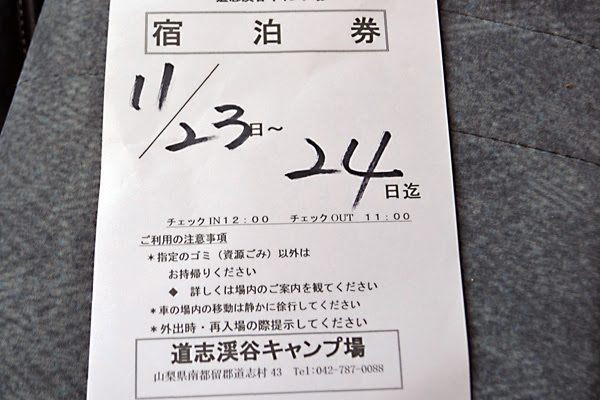 宿泊券
11/23日～
24日迄
チェックIN 12：00　チェックOUT 11:00
ご利用の注意事項
＊指定のゴミ（資源ごみ）以外は
お持帰りください
◆ 詳しくは場内のご案内を観てください
＊車の場内の移動は静かに徐行してください
＊外出時・再入場の際提示してください
道志渓谷キャンプ場
山梨県南都留郡道志村 43　Tel:042-787-0088